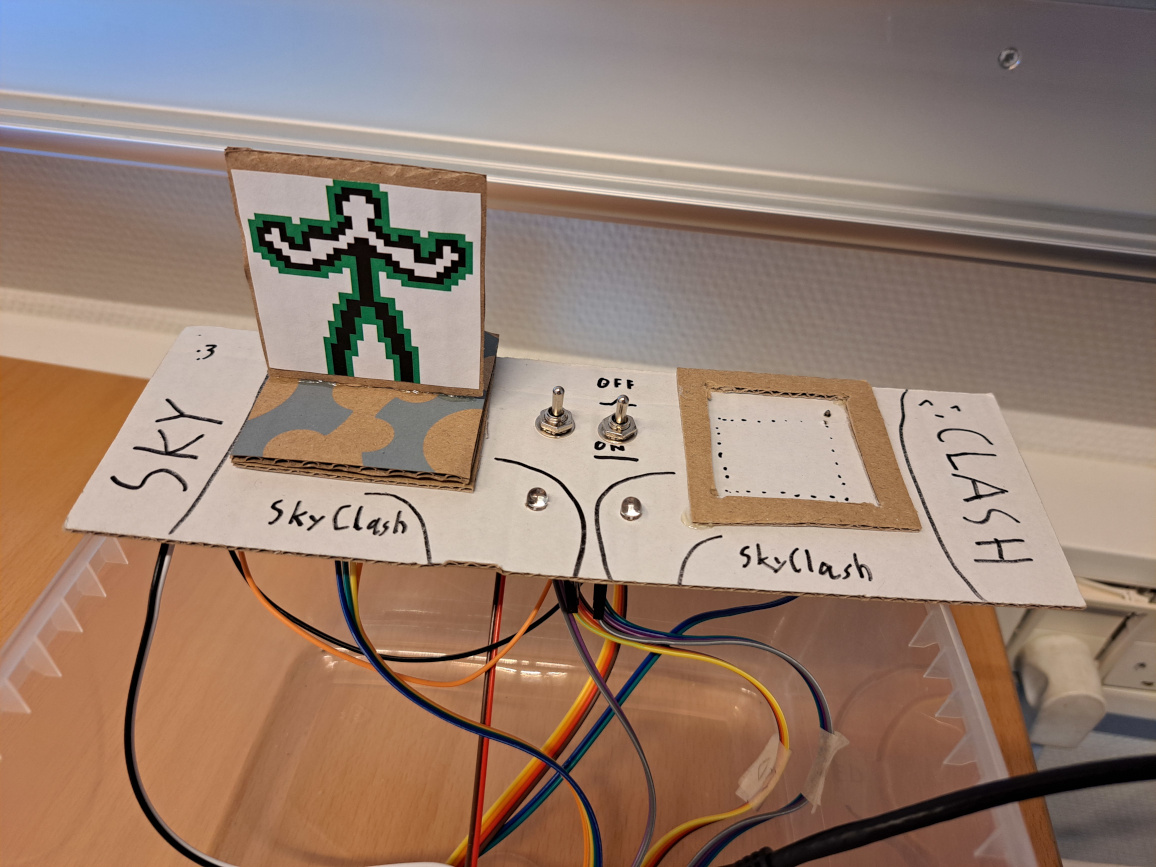 :3
SKY
SkyClash
OFF
ON
SkyClash
^^:CLASH